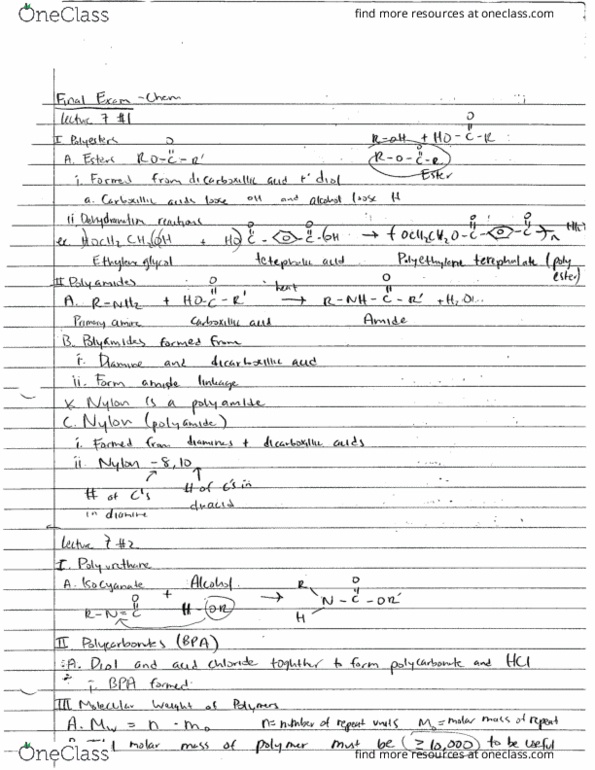 OneClass find more resources at oneclass.com
Final Exam - Chem
Lecture 7 #1
I Polyesters R-OH + HO-C-R
O
A. Esters RO-C-R' R-O-C-R
O O
Ester
i. Formed from dicarboxillic acid + diol
a. Carboxillic acids loose OH and alcohol loose H
ii Dehydration reactions
ex. HOCH2CH2OH + HO C C-OH → ( OCH2CH2O-C C )n
Ethylene glycol acid Polyethylene (poly
ester)
II Polyamides
O O
A. R-NH2 + HO-C-R' heat → R-NH-C-R' + H2O
Primary amine Carboxillic acid Amide
B. Polyamides formed from
i. Diamine and dicarboxillic acid
ii. Form amide linkage
* Nylon is a polyamide
C. Nylon (polyamide)
i. Formed from diamines + dicarboxillic acids
ii Nylon - 8,10
# of C's # of C's in
in diamine diacid
Lecture 7 #2
I. Polyurethane
A. Isocyanate + Alcohol
R-N=C H-OR → R N-C-OR'
O O
H
II Polycarbonates (BPA)
A. Diol and acid chloride toghther to form polycarbonate and HCl
i. BPA formed
III Molecular Weight of Polymers
A. Mw = n · mo n= number of repeat units Mo = molar mass of repeat
molar mass of polymer must be (≥10,000) to be useful
OneClass find more resources at oneclass.com